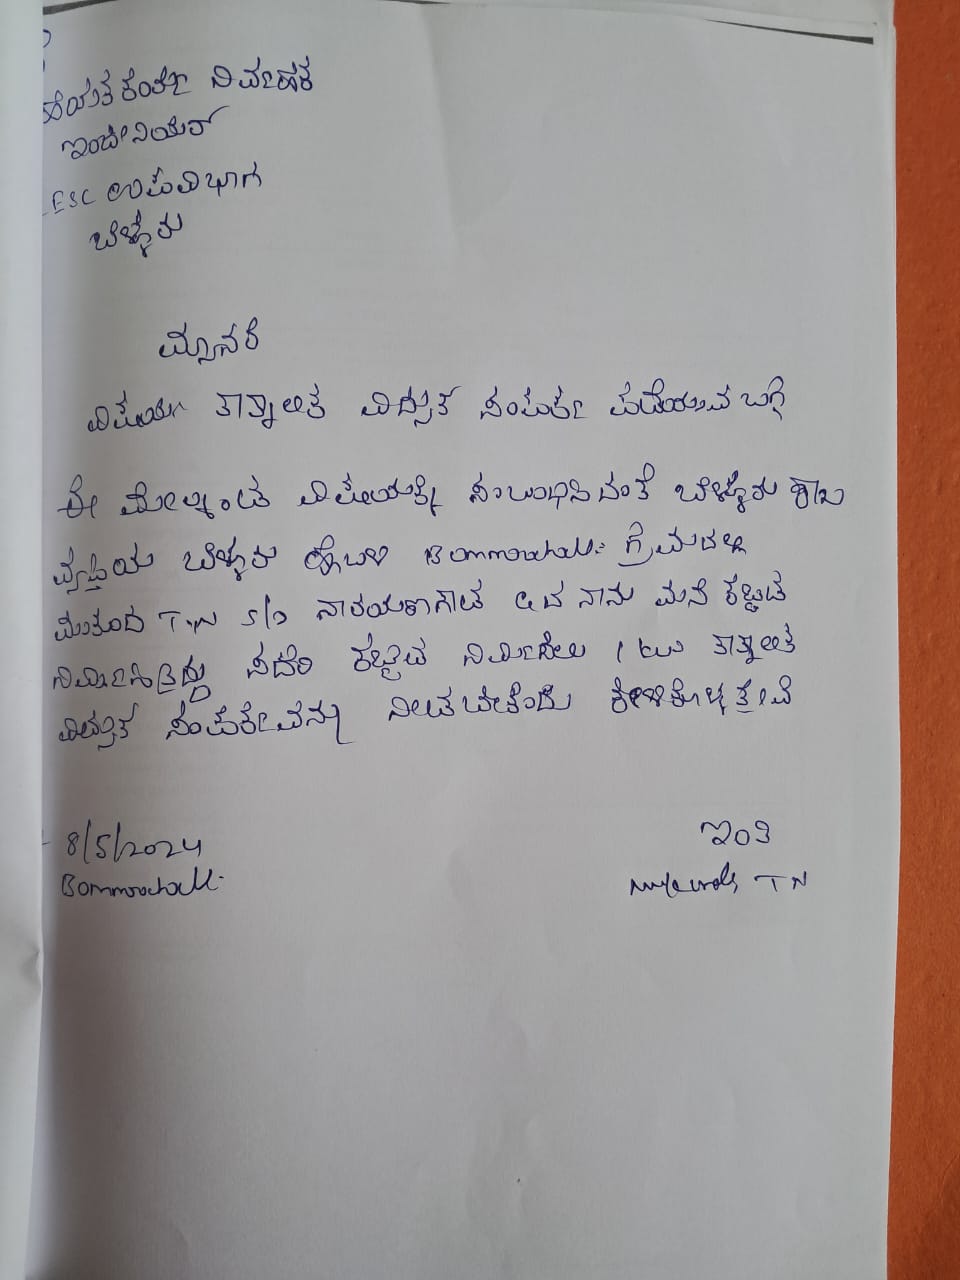 ಸಹಾಯಕ ಕಾರ್ಯ ನಿರ್ವಾಹಕ
ಇಂಜಿನಿಯರ್
ESC ಉಪವಿಭಾಗ
ಬೆಳ್ಳೂರು
ಮಾನ್ಯರೆ
ವಿಷಯ ತಾತ್ಕಾಲಿಕ ವಿದ್ಯುತ ಸಂಪರ್ಕ ಪಡೆಯುವ ಬಗ್ಗೆ
ಈ ಮೇಲ್ಕಂಡ ವಿಷಯಕ್ಕೆ ಸಂಬಂಧಿಸಿದಂತೆ ಬೆಳ್ಳೂರು ಶಾಖ
ವ್ಯಾಪ್ತಿಯ ಬೆಳ್ಳೂರು ಹೋಬಳಿ ಗ್ರಾಮದಲ್ಲಿ
T.N S/o ನಾರಯಣಗೌಡ ಆದ ನಾನು ಮನೆ ಕಟ್ಟಡ
ನಿರ್ಮಿಸುತ್ತಿದ್ದು ಸದರಿ ಕಟ್ಟಡ ನಿರ್ಮಿಸಲು 1 kw ತಾತ್ಕಾಲಿಕ
ವಿದ್ಯುತ ಸಂಪರ್ಕವನ್ನು ನೀಡಬೇಕೆಂದು ಕೇಳಿಕೊಳ್ಳುತ್ತೇವೆ
8/5/2024
ಇಂತಿ
TN